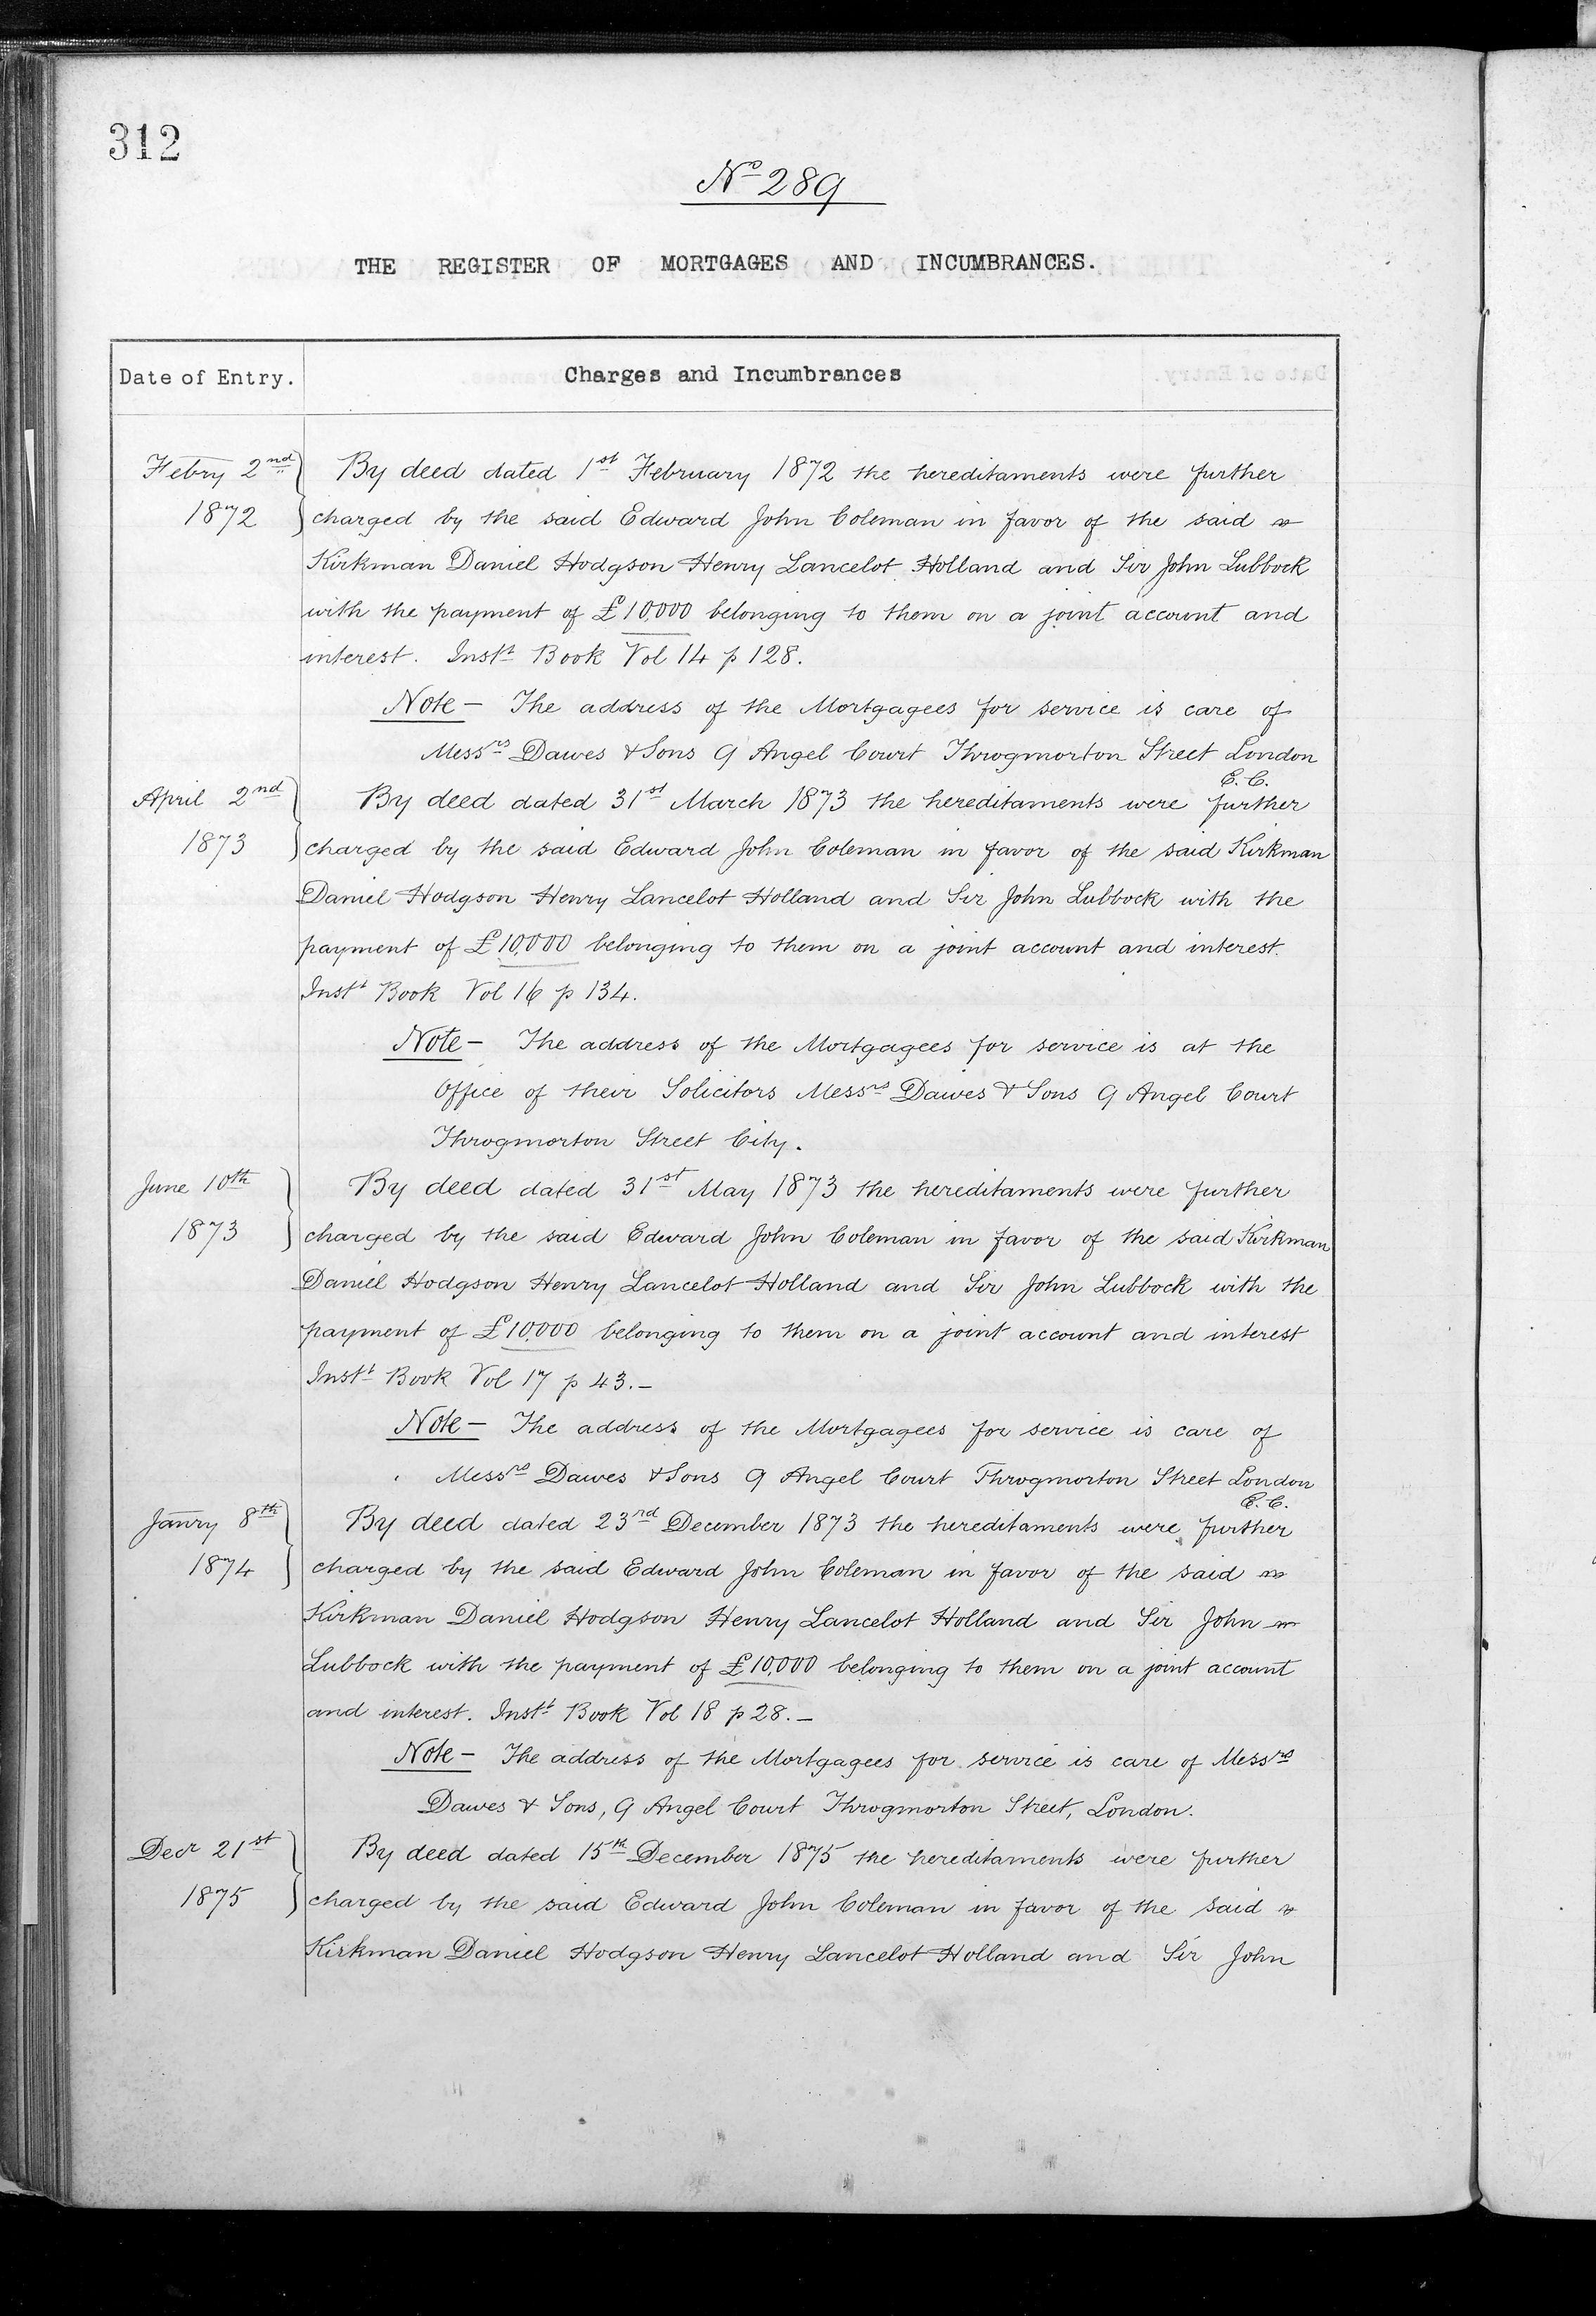 312
No 289
THE REGISTER OF MORTGAGES AND INCUMBRANCES.
Date of Entry. Charges and Incumbrances
Febry 2nd By deed dated 1st February 1872 the hereditaments were further
1872 charged by the said Edward John Coleman in favor of the said
Kirkman Daniel Hodgson Henry Lancelot Holland and Sir John Lubbock
with the payment of £10,000 belonging to them on a joint account and
interest. Instt Book Vol 14 p 128.
Note – The address of the Mortgagees for service is care of
Messrs Dawes & Sons 9 Angel Court Throgmorton Street London
E.C.
April 2nd By deed dated 31st March 1873 the hereditaments were further
1873 charged by the said Edward John Coleman in favor of the said Kirkman
Daniel Hodgson Henry Lancelot Holland and Sir John Lubbock with the
payment of £10,000 belonging to them on a joint account and interest.
Instt Book Vol 16 p 134.
Note – The address of the Mortgagees for service is at the
Office of their Solicitors Messrs Dawes & Sons 9 Angel Court
Throgmorton Street City.
June 10th By deed dated 31st May 1873 the hereditaments were further
1873 charged by the said Edward John Coleman in favor of the said Kirkman
Daniel Hodgson Henry Lancelot Holland and Sir John Lubbock with the
payment of £10,000 belonging to them on a joint account and interest
Instt Book Vol 17 p 43. –
Note – The address of the Mortgagees for service is care of
Messrs Dawes & Sons 9 Angel Court Throgmorton Street London
E.C.
Janry 8th By deed dated 23rd December 1873 the hereditaments were further
1874 charged by the said Edward John Coleman in favor of the said
Kirkman Daniel Hodgson Henry Lancelot Holland and Sir John
Lubbock with the payment of £10,000 belonging to them on a joint account
and interest. Instt Book Vol 18 p 28. –
Note – The address of the Mortgagees for service is care of Messrs
Dawes & Sons, 9 Angel Court Throgmorton Street, London.
Decr 21st By deed dated 15th December 1875 the hereditaments were further
1875 charged by the said Edward John Coleman in favor of the said
Kirkman Daniel Hodgson Henry Lancelot Holland and Sir John